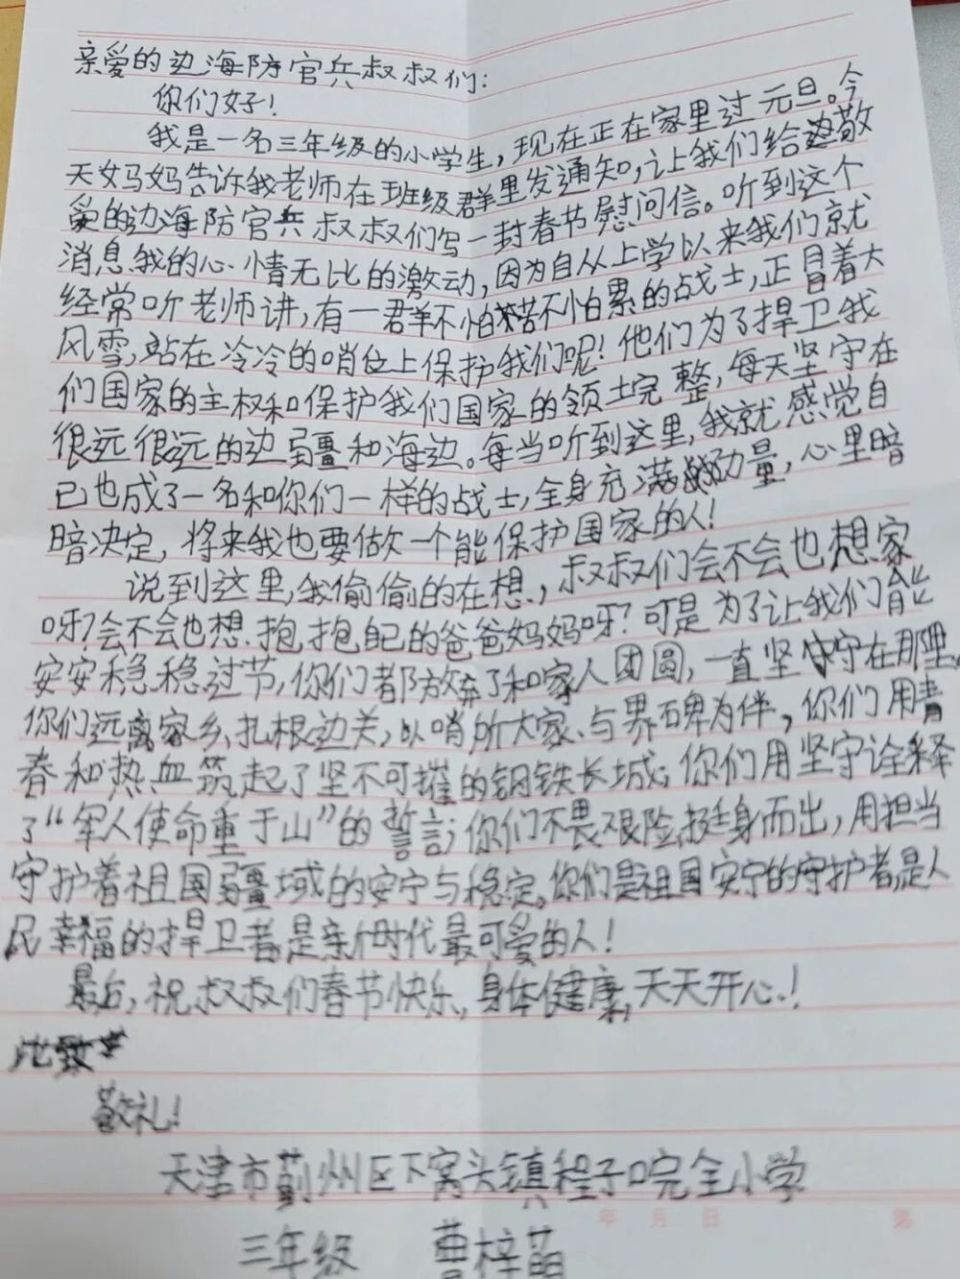 亲爱的边海防官兵叔叔们:
你们好!
我是一名三年级的小学生,现在正在家里过元旦。今
天妈妈告诉我老师在班级群里发通知,让我们给敬
爱的边海防官兵叔叔们写一封春节慰问信。听到这个
消息我的心情无比的激动,因为自从上学以来我们就
经常听老师讲,有一群不怕苦不怕累的战士,正冒着大
风雪,站在冷冷的哨位上保护我们呢!他们为了捍卫我
们国家的主权和保护我们国家的领土完整,每天坚守在
很远很远的边疆和海边。每当听到这里,我就感觉自
己也成了一名和你们一样的战士,全身充满力量,心里暗
暗决定,将来我也要做一个能保护国家的人!
说到这里,我偷偷的在想,叔叔们会不会也想家
呀?会不会也想抱抱自己的爸爸妈妈呀?可是为了让我们能
安安稳稳过节,你们都放弃了和家人团圆,一直坚守在那里。
你们远离家乡,扎根边关,以哨所大家、与界碑为伴,你们用青
春和热血筑起了坚不可摧的钢铁长城;你们用坚守诠释
了“军人使命重于山”的誓言;你们不畏艰险,挺身而出,用担当
守护着祖国疆域的安宁与稳定。你们是祖国安宁的守护者,是人
民幸福的捍卫者,是新时代最可爱的人!
最后,祝叔叔们春节快乐,身体健康,天天开心!
此致
敬礼!
天津市蓟州区下窝头镇程子口完全小学
三年级 曹梓萌
年 月 日 第